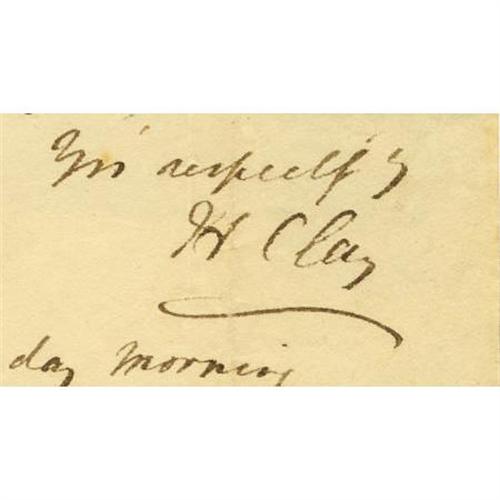 Yrs respectfy
H Clay
day morning